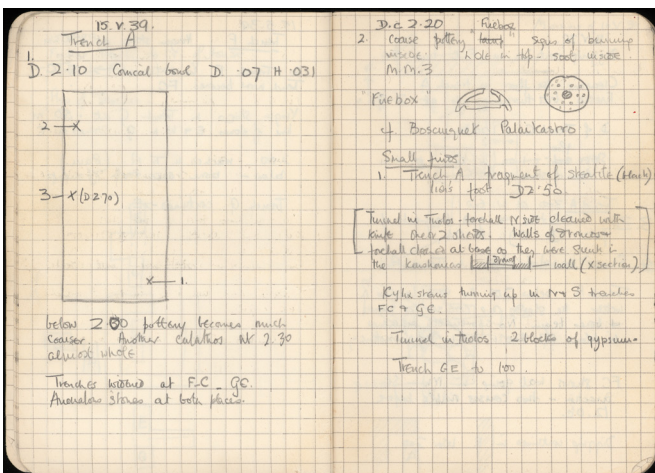 15.V.39.
Trench A
1.
D. 2.10 Conical bowl D. .07 H .031
2
3 (D 2.70)
1.
below 2.00 pottery becomes much
coarser. Another calathos at 2.30
almost whole
Trenches widened at F-C - GE.
Anomalous stones at both places.
D.c 2.20 Firebox
2. coarse pottery "lamp" signs of burning
inside hole in top - soot inside.
M.M.3
"Firebox"
cf Bosanquet Palaikastro
Small finds.
1. Trench A fragment of steatite (black)
lion's foot D2.50
[Tunnel in Tholos - forehall N side cleaned with
knife over 2 sherds. Walls of dromos +
forehall cleaned at base as they were sunk in
the kouskouras drain wall (x section)]
Kylix stems turning up in N & S trenches
FC & GE.
Tunnel in tholos 2 blocks of gypsum.
Trench GE to 100.